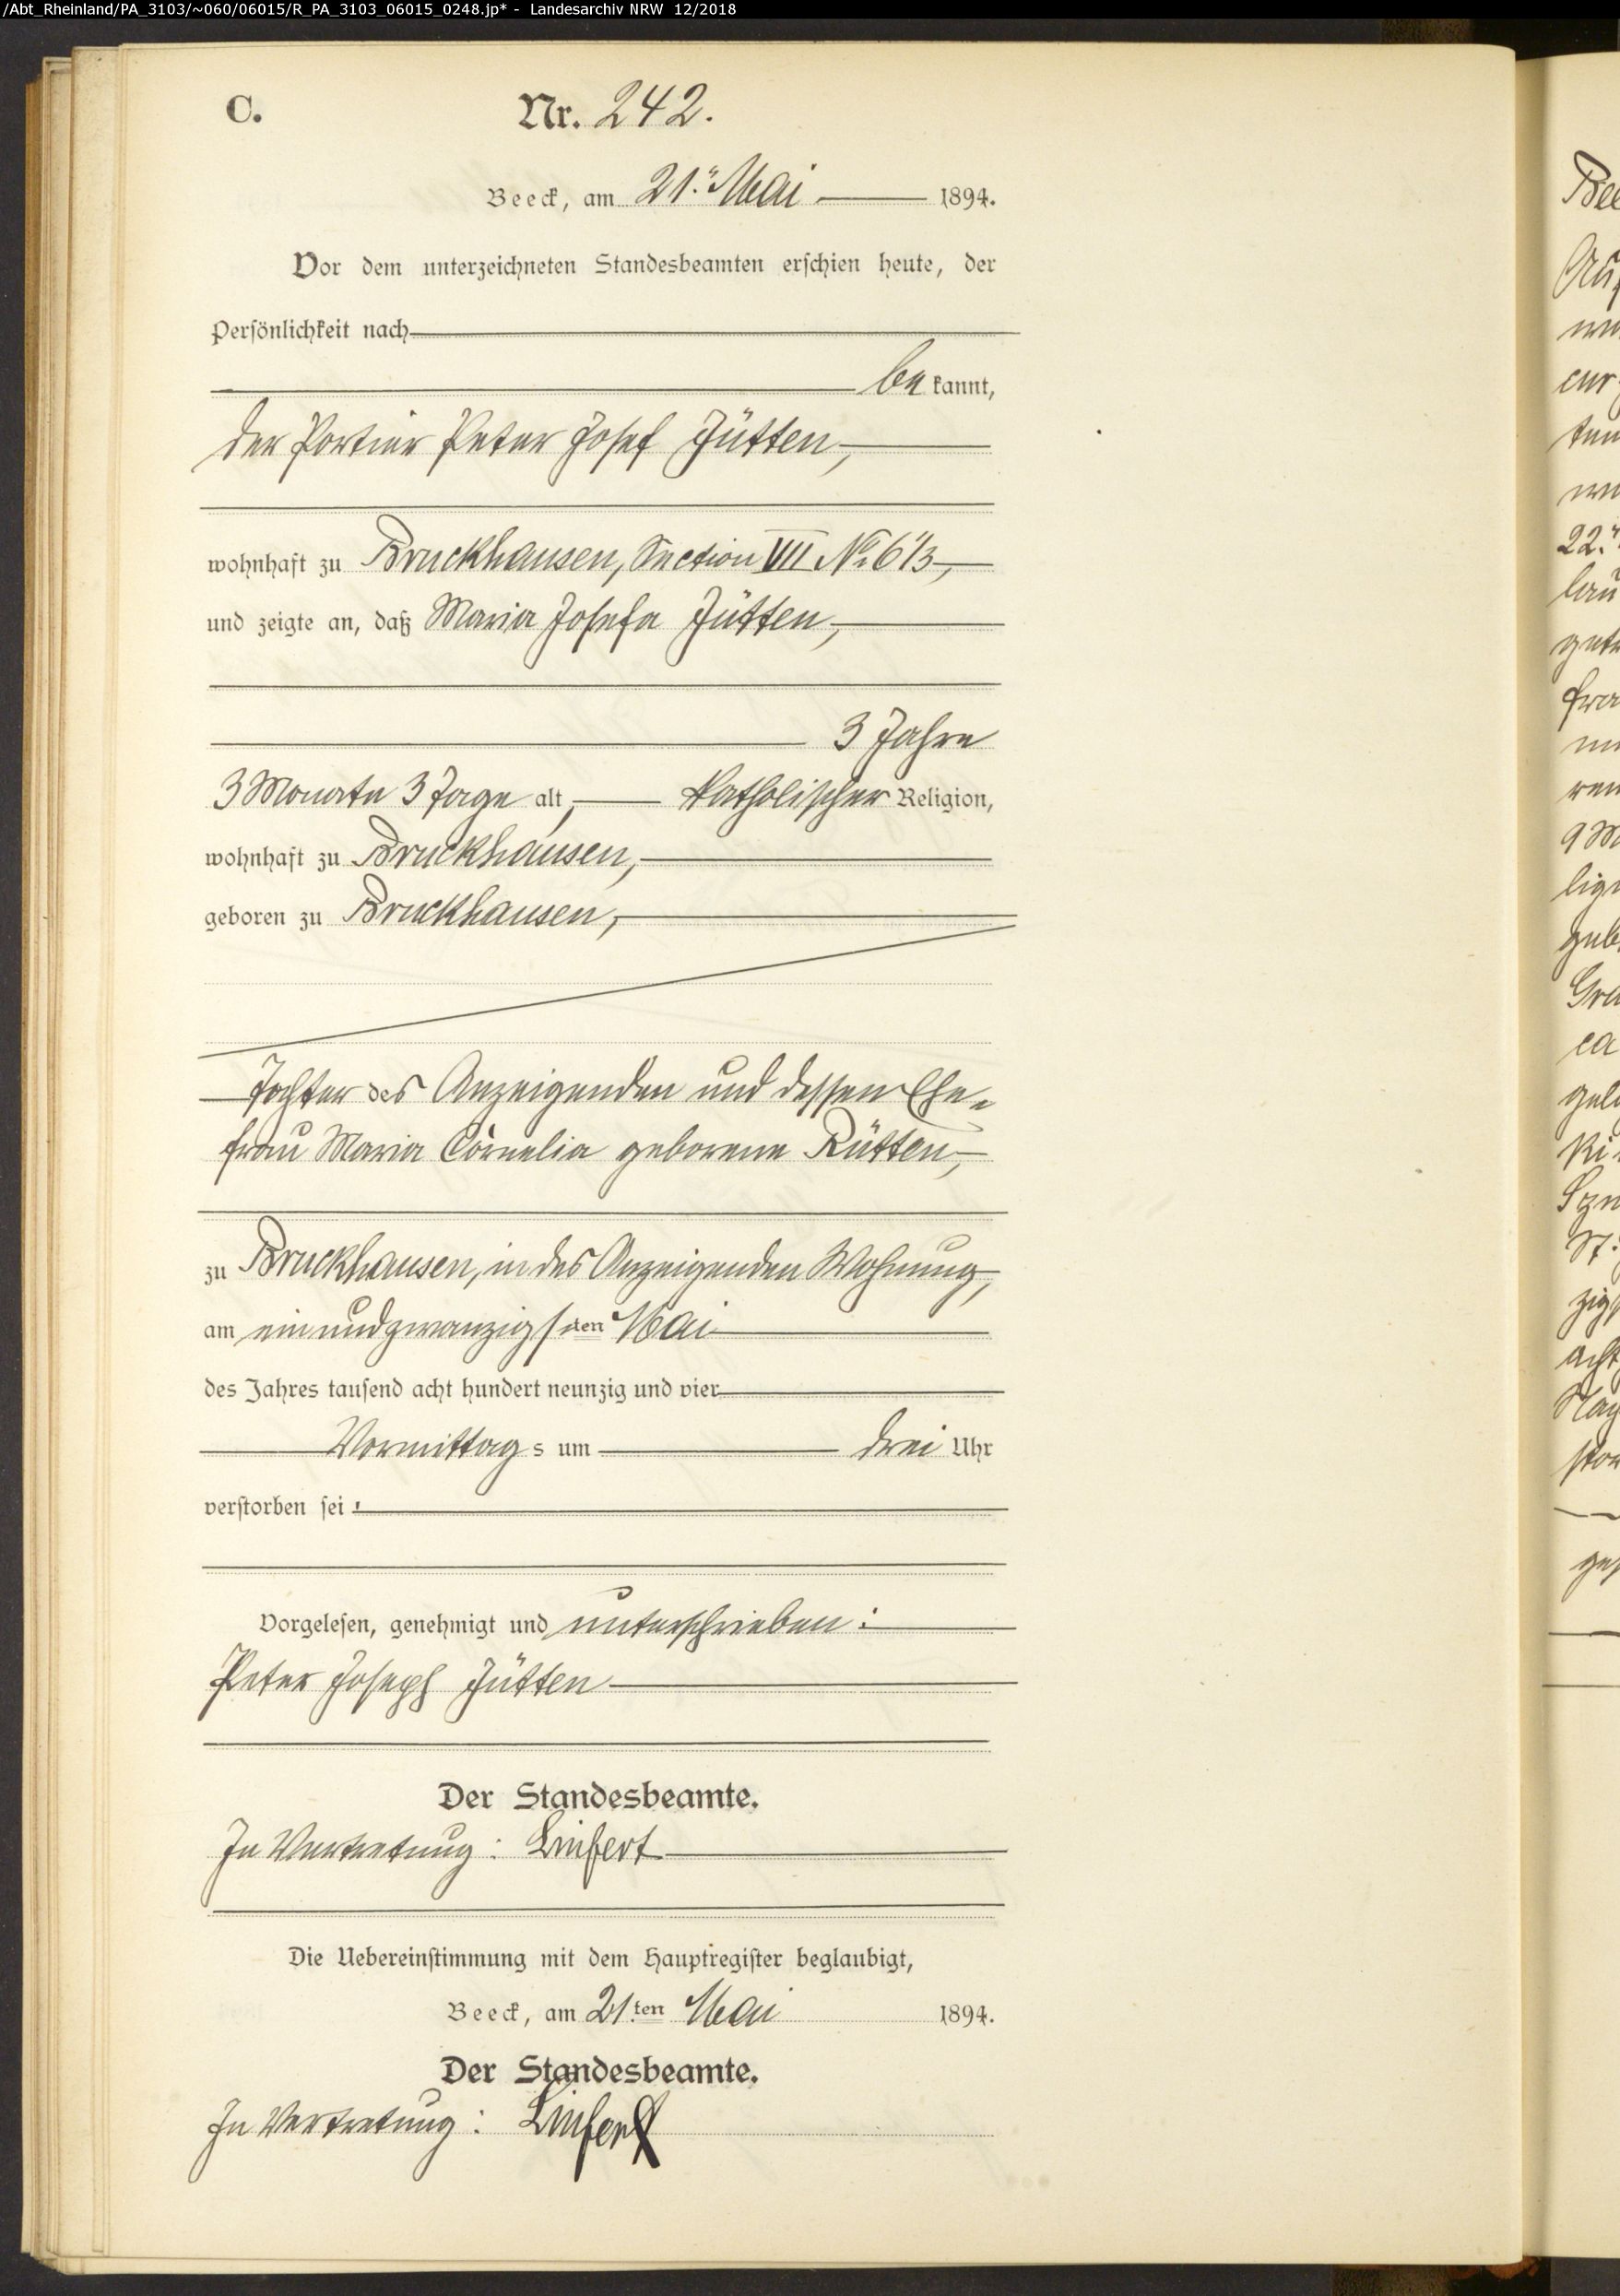 /Abt_Rheinland/PA_3103/~060/06015/R_PA_3103_06015_0248.jp* - Landesarchiv NRW 12/2018
C.
Nr. 242.
Beeck, am 21.ᵗ Mai 1894.
Vor dem unterzeichneten Standesbeamten erschien heute, der
Persönlichkeit nach
bekannt,
der Portier Peter Josef Jütten,
wohnhaft zu Bruckhausen, Section VII No 6 1/3,
und zeigte an, daß Maria Josefa Jütten,
3 Jahre
3 Monate 3 Tage alt, katholischer Religion,
wohnhaft zu Bruckhausen,
geboren zu Bruckhausen,
Tochter des Anzeigenden und dessen Ehe-
frau Maria Cornelia geborene Rütten,
zu Bruckhausen, in des Anzeigenden Wohnung,
am ein und zwanzigsten Mai
des Jahres tausend acht hundert neunzig und vier
Vormittags um drei Uhr
verstorben sei.
Vorgelesen, genehmigt und unterschrieben:
Peter Joseph Jütten
Der Standesbeamte.
In Vertretung: Linfert
Die Uebereinstimmung mit dem Hauptregister beglaubigt,
Beeck, am 21.ten Mai 1894.
Der Standesbeamte.
In Vertretung: Linfert